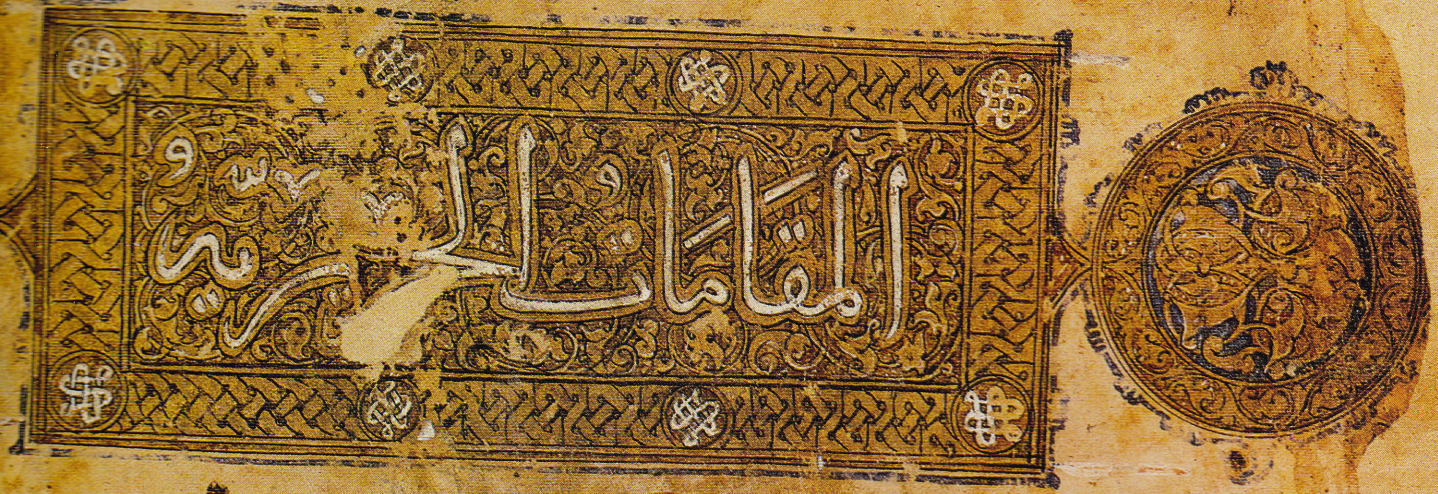 المقامات للحريري